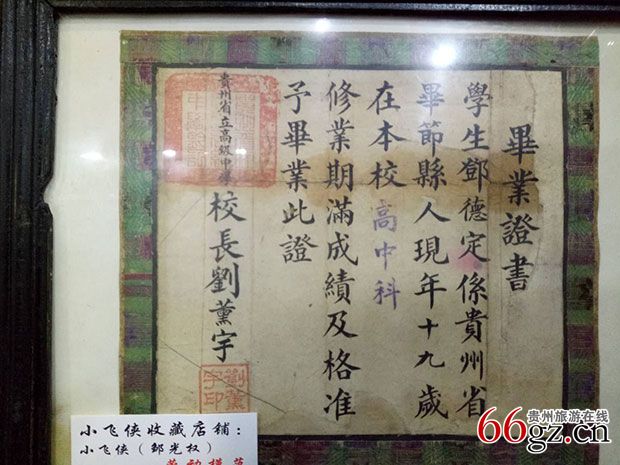 畢業證書
學生鄧德定係貴州省
畢節縣人現年十九歲
在本校高中科
修業期滿成績及格准
予畢業此證
貴州省立高級中學
校長劉薰宇
劉薰
宇印
小飞侠收藏店铺：
小飞侠（邹光权）
贵州旅游在线
66gz.cn